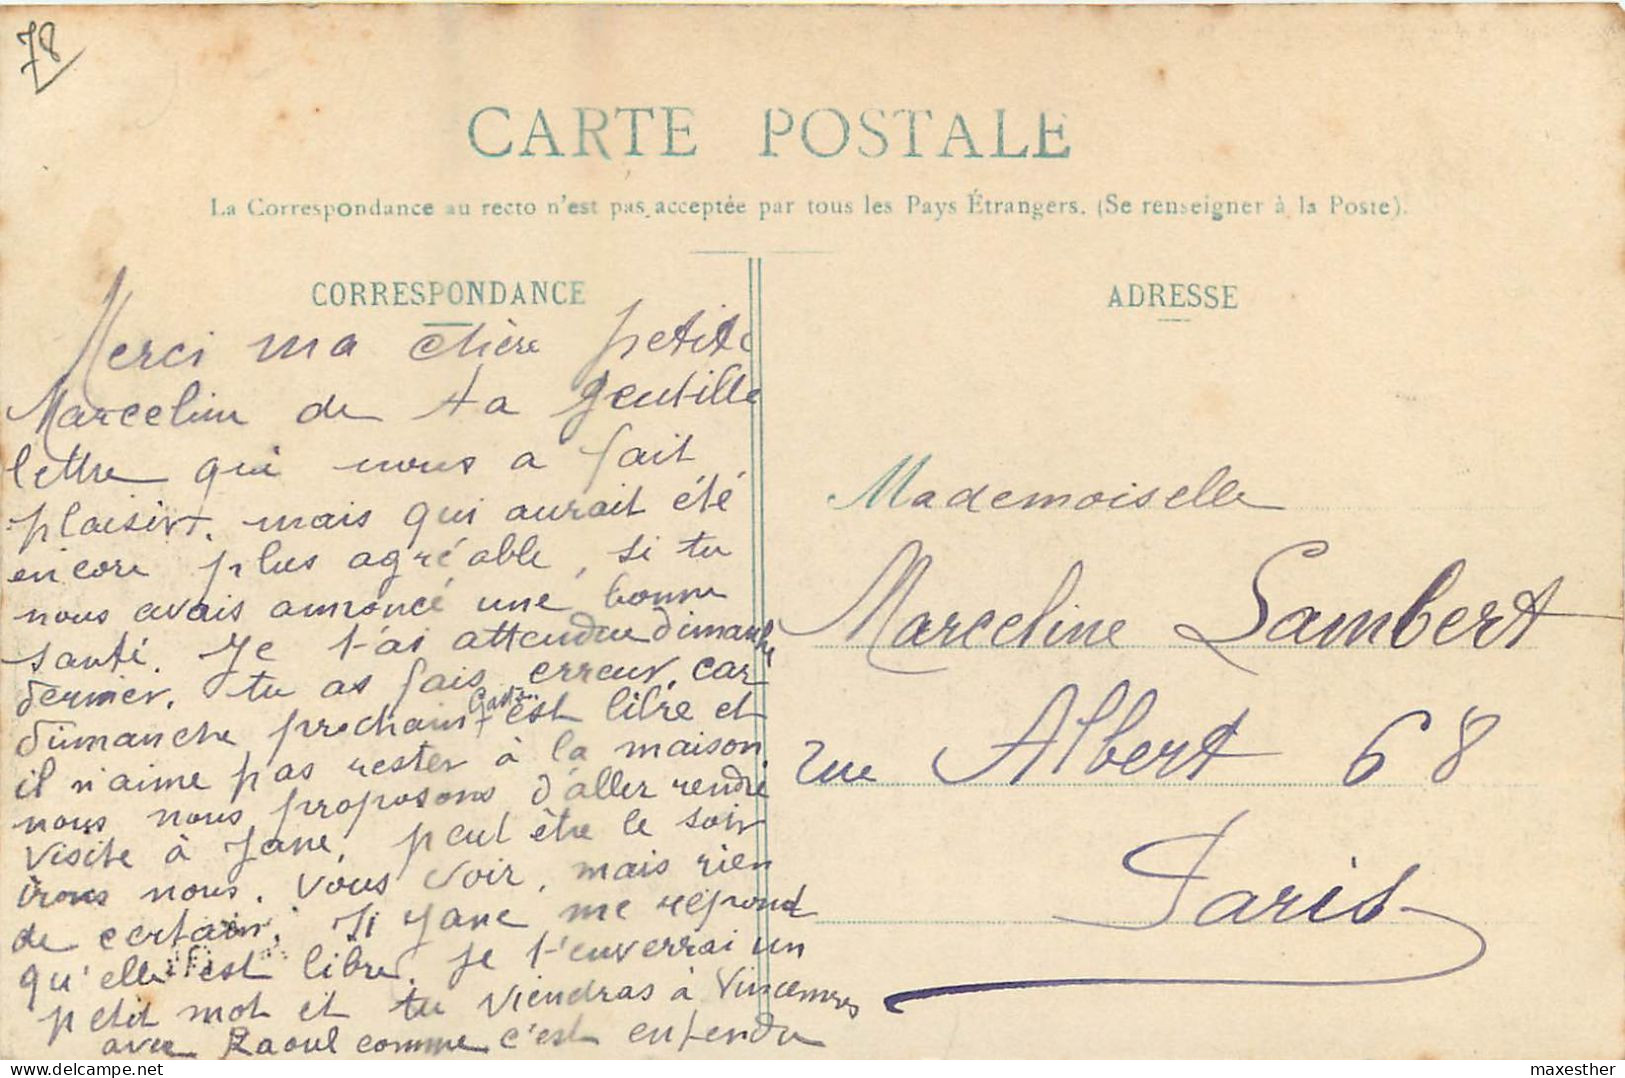 78
CARTE POSTALE
La Correspondance au recto n'est pas acceptée par tous les Pays Étrangers. (Se renseigner à la Poste).
CORRESPONDANCE
Merci ma chère petite
Marceline de ta gentille
lettre qui nous a fait
plaisir, mais qui aurait été
encore plus agréable, si tu
nous avais annoncé une bonne
santé. Je t'ai attendue dimanche
dernier, tu as fais erreur, car
dimanche prochain Gaston est libre et
il n'aime pas rester à la maison
nous nous proposons d'aller rendre
visite à Jane, peut être le soir
irons nous, vous voir, mais rien
de certain. Si Jane me répond
qu'elle est libre, je t'enverrai un
petit mot et tu viendras à Vincennes
avec Raoul comme c'est entendu
ADRESSE
Mademoiselle
Marceline Lambert
rue Albert 68
Paris
maxesther